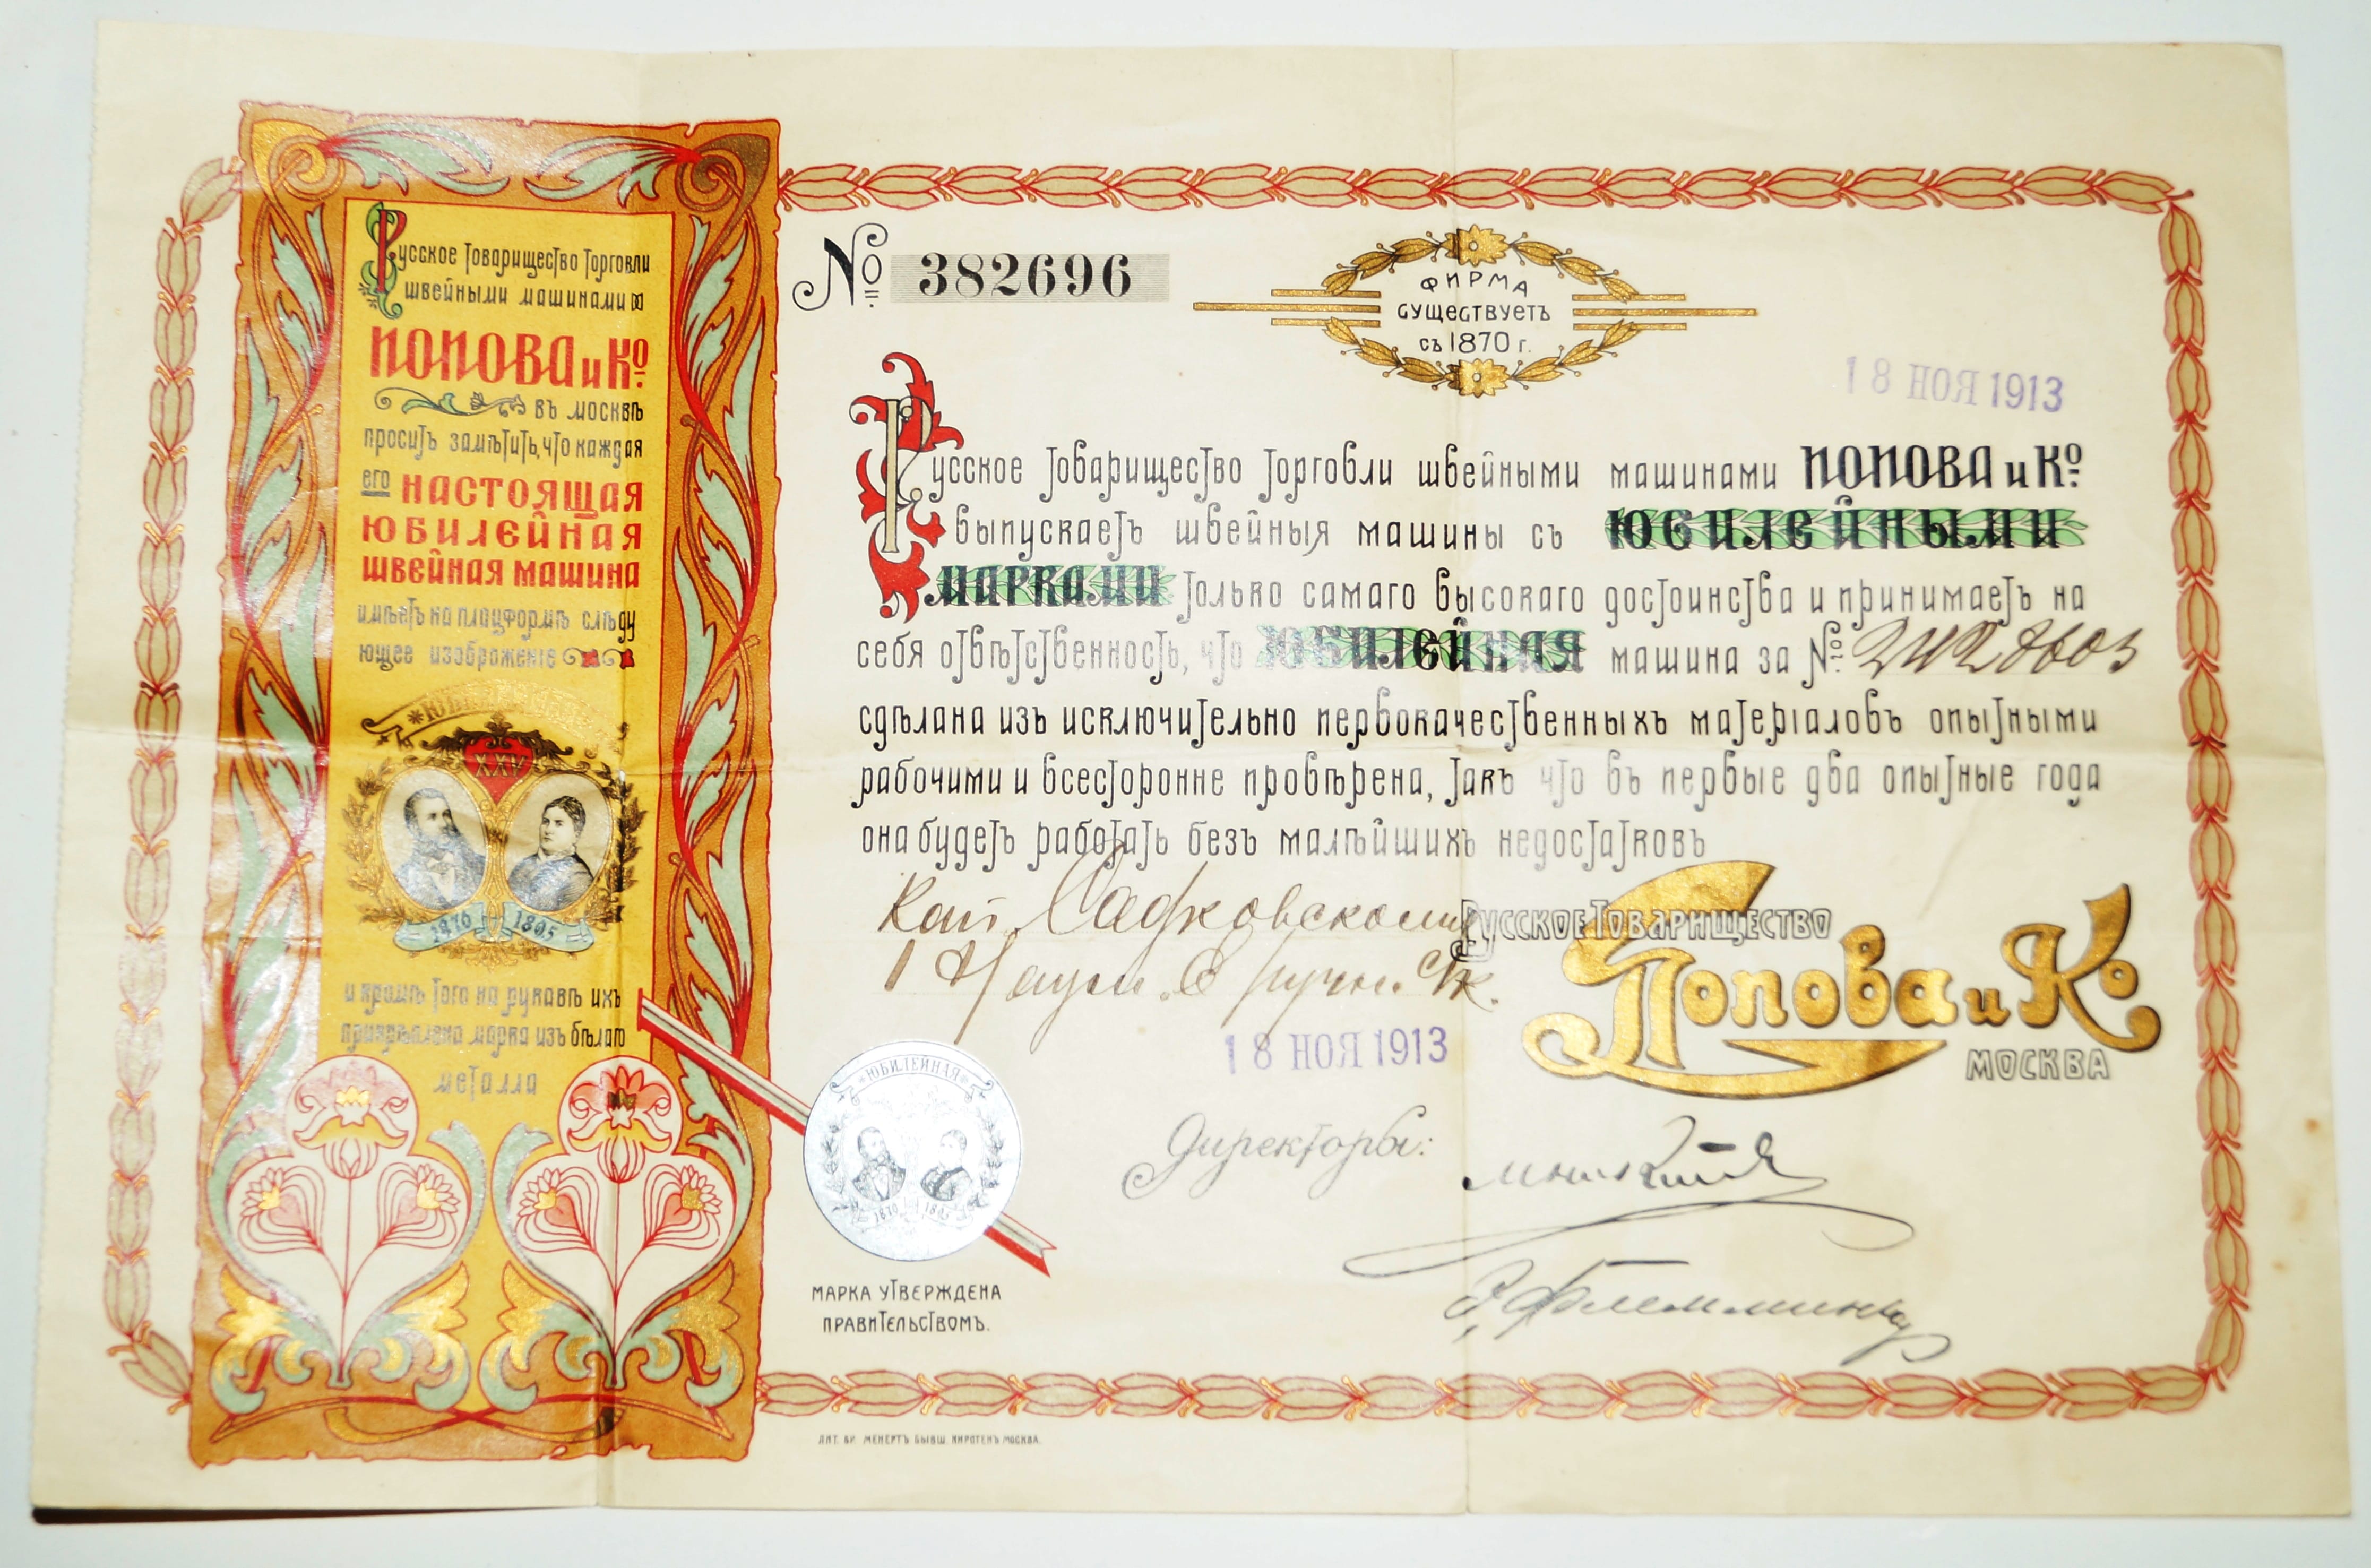 Русское Товарищество Торговли
швейными машинами
ПОПОВА и Кº
въ москвѣ
проситъ замѣтить, что каждая
его НАСТОЯЩАЯ
ЮБИЛЕЙНАЯ
ШВЕЙНАЯ МАШИНА
имѣетъ на платформѣ слѣду
ющее изображенiе
XXV
1870 1895
и кромѣ того на рукавѣ ихъ
прикрѣплена марка изъ бѣлаго
металла
№ 382696
ФИРМА
СУЩЕСТВУЕТЪ
СЪ 1870 г.
18 НОЯ 1913
Русское Товарищество Торговли швейными машинами ПОПОВА и Кº
выпускаетъ швейныя машины съ ЮБИЛЕЙНЫМИ
МАРКАМИ только самаго высокаго достоинства и принимаетъ на
себя отвѣтственность, что ЮБИЛЕЙНАЯ машина за №
сдѣлана изъ исключительно первокачественныхъ матерiаловъ опытными
рабочими и всесторонне провѣрена, такъ что въ первые два опытные года
она будетъ работать безъ малѣйшихъ недостатковъ
РУССКОЕ ТОВАРИЩЕСТВО
Попова и Кº
МОСКВА
18 НОЯ 1913
Директоры:
ЮБИЛЕЙНАЯ
1870
МАРКА УТВЕРЖДЕНА
ПРАВИТЕЛЬСТВОМЪ.
Флемминг
ЛИТ. БР. МЕНЕРТЪ БЫВШ. КИРСТЕНЪ МОСКВА.